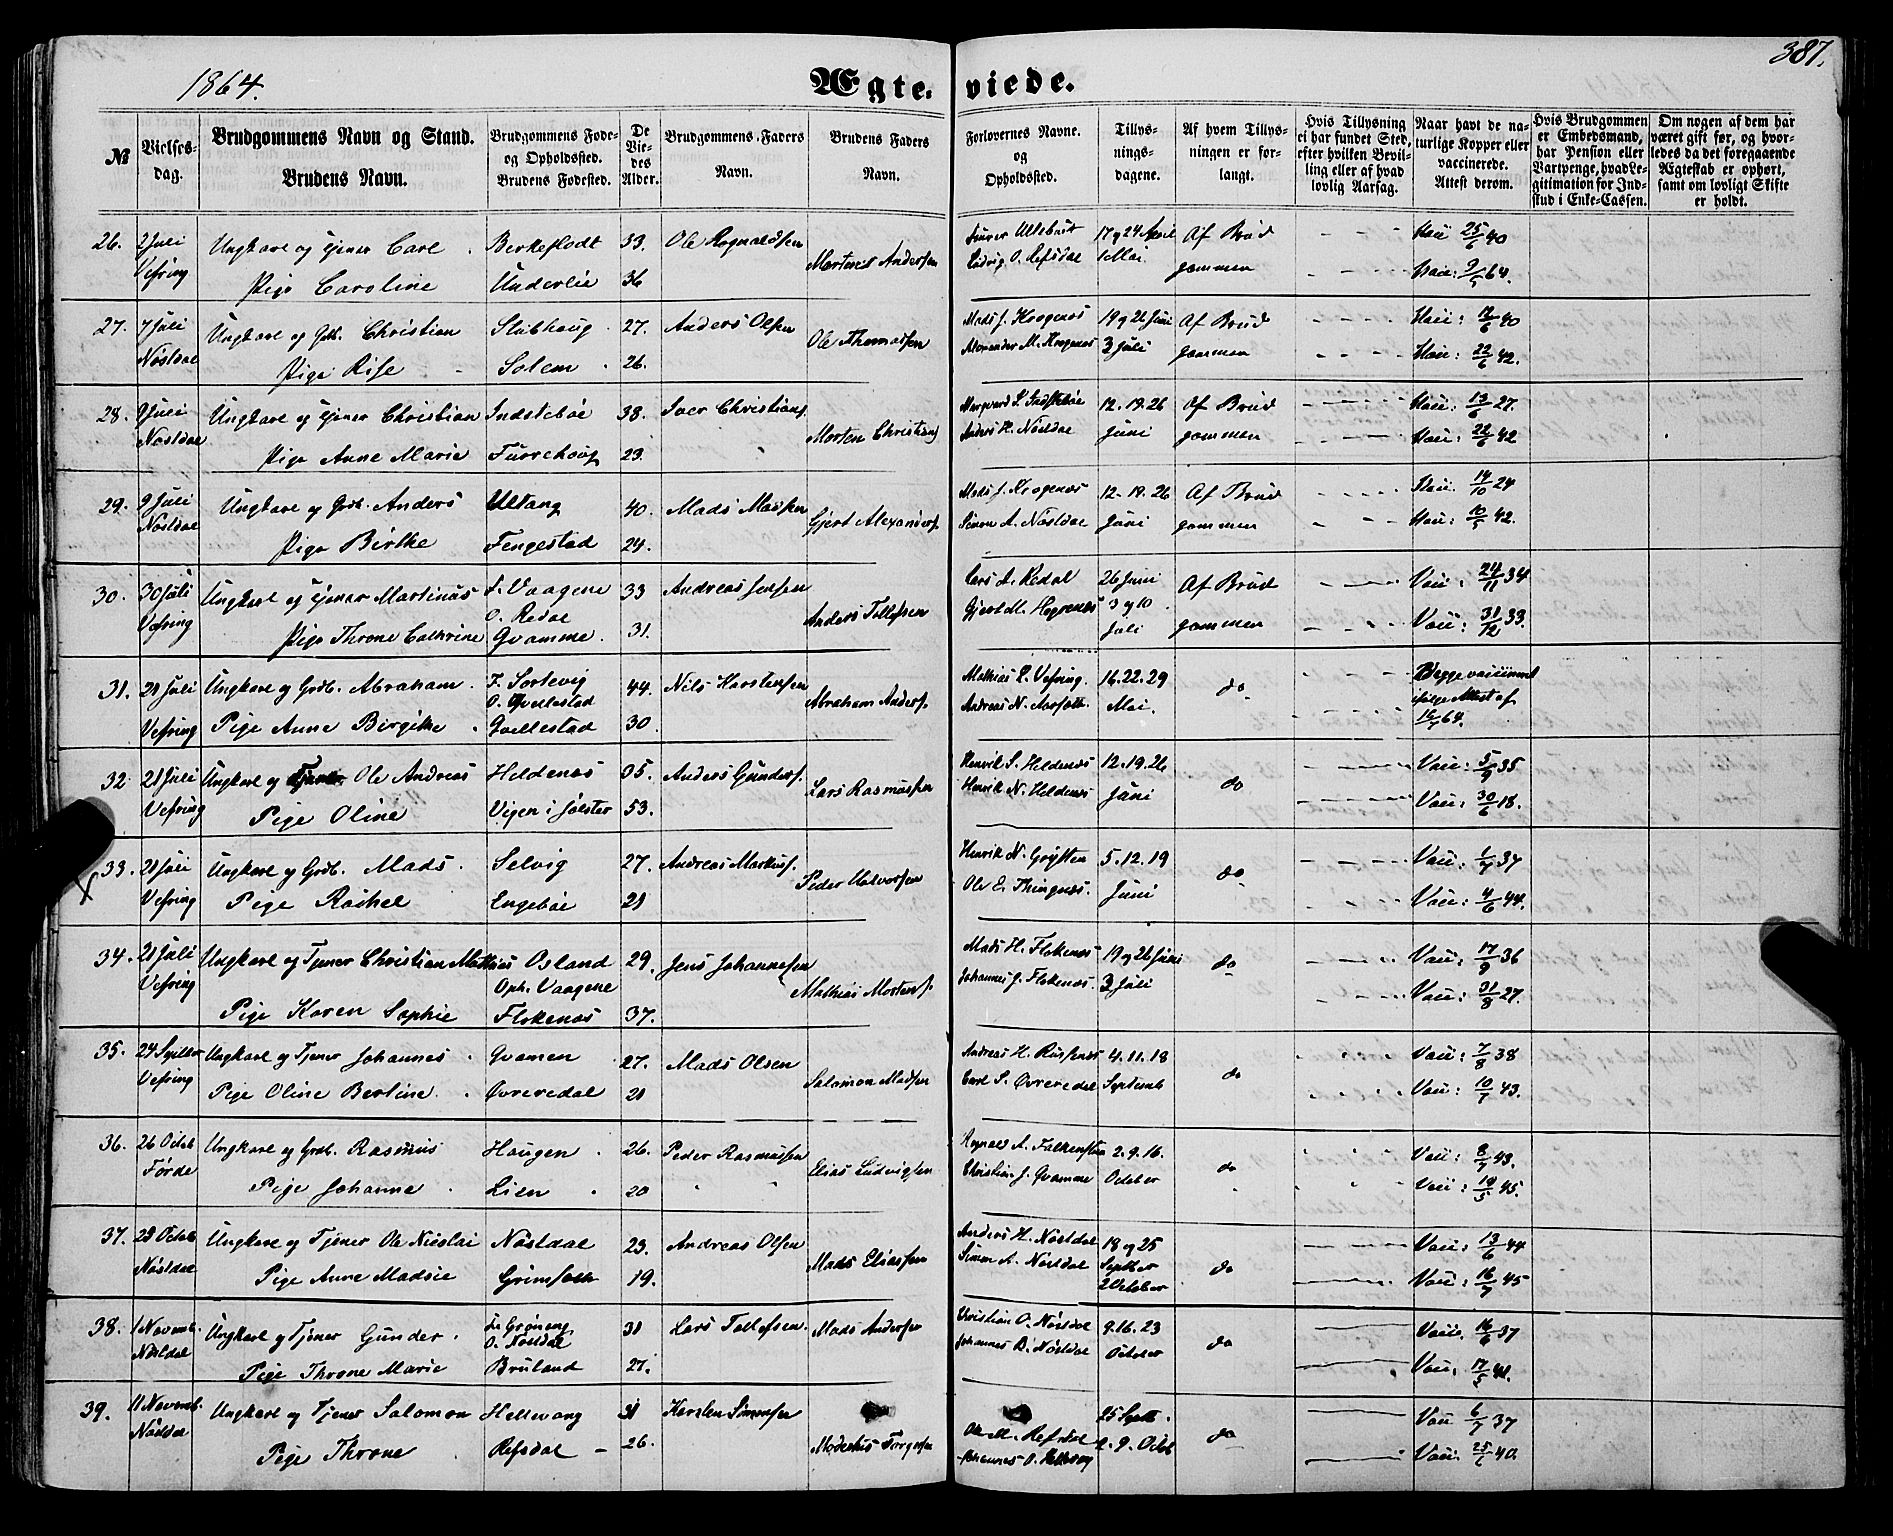 1864.
Ægteviede.
387.
№
Vielses-dag.
Brudgommens Navn og Stand.
Brudens Navn.
Brudgommens Føde- og Opholdssted.
Brudens Fødested.
De Viedes Alder.
Brudgommens Faders Navn.
Brudens Faders Navn.
Forlovernes Navne. og Opholdssted.
Tillysningsdagene.
Af hvem Tillysningen er forlangt.
Hvis Tillysning ei har fundet Sted, efter hvilken Bevilling eller af hvad lovlig Aarsag.
Naar havt de naturlige Kopper eller vaccinerede. Attest derom.
Hvis Brudgommen er Embedsmand, har Pension eller Vartpenge, hvad Legitimation for Indskud i Enke-Cassen.
Om nogen af dem har været gift før, og hvorledes da det foregaaende Ægteskab er ophørt, samt om lovligt Skifte er holdt.
26. 2 Juli Ungkarl og Tjener Carl Birkeflodt 33. Ole Rognaldsen 17 og 24 April Af Brud Vaii 25/6 40
Vefring Pige Caroline Underlie 36 Morten Andersen Ludvig O. Refsdal 1 Mai gommen Vaii: 9/5 64.
27. 7 Juli Ungkarl og Grdb. Christian Slabhaug 27. Anders Olsen Mads J. Krogenæs 19 og 26 Juni Af Brud Vaii: 12/6 40
Nøstdal Pige Rise Solem 26. Ole Thomassen Alexander M. Krogenæs 3 Juli gommen Vaii: 22/6 42.
28. 9 Juli Ungkarl og Tjener Christian Indstebøe 38. Iver Christians. 12. 19. 26 Af Brud Vaii: 13/6 27.
Nøstdal Pige Anne Marie Furrehøug 23. Morten Christians. Anders H. Nøstdal Juni gommen Vaii: 22/6 42
29. 9 Juli Ungkarl og Grdb. Anders Ultang 40. Mads Madsen Mads J. Krogenæs 12. 19. 26 Af Brud Vaii. 14/10 24
Nøstdal Pige Birthe Fengestad 24. Gjert Alexanders. Simon A. Nøstdal Juni gommen Vaii: 10/5 42.
30. 30 Juli Ungkarl og Tjener Martinus F. Vaagene 33 Andreas Jensen Lars A. Redal 26 Juni Af Brud Vaii: 24/11 34
Vefring O. Redal Gjert M. 3 og 10
Pige Throne Cathrine Qvamme. 31. Anders Tollefsen Juli gommen Vaii: 31/12 33.
31. 21 Juli Ungkarl og Grdb. Abraham F. Sortevig 44. Nils Karstensen Mathias L. Vefring. 16. 22. 29 do Begge vaccineret
O. Qvellestad Andreas N. Mai. ifølge Attest af
Vefring Pige Anne Birgithe Qvellestad 30. Abraham Anders. 16/7 64.
32 21 Juli Ungkarl og Ole Andreas Heldenæs 05. Anders Gunders. Henrik S. Heldenæs 12. 19. 26 do Vaii: 5/9 35
Vefring Pige Oline Vigen i Jølster 53. Lars Rasmussen Henrik N. Heldenæs Juni Vaii: 30/6 18.
33. 21 Juli Ungkarl og Grdb. Mads. Selvig 27. Andreas Markus. Henrik N. Grytten 5. 12. 19 do Vaii: 1/7 37
Vefring Pige Rachel Engebøe 21 Peder Halvorsen Ole E. Thingnæs. Juni Vaii: 4/6 44.
34. 21 Juli Ungkarl og Tjener Christian Mathias Osland 29. Jens Johannesen Mads H. Flokenæs 19 og 26 Juni do Vaii: 17/9 36
Vefring Oph. Vaagene Mathias Mortens. Johannes J. Flokenæs. 3 Juli Vaii: 31/8 27.
Pige Karen Sophie Flokenæs 37.
35. 24 Septbr Ungkarl og Tjener Johannes Qvamen 27. Mads Olsen Andreas H. 4. 11. 18 do Vaii: 7/8 38
Vefring Pige Oline Bertine Øvreredal 21 Salamon Madsen Carl S. Øvreredal Septemb Vaii: 10/7 43.
36. 26 Octob Ungkarl og Grdb. Rasmus Haugen 26. Peder Rasmussen Rognald A. 2. 9. 16. do Vaii: 8/7 43.
Førde Pige Johanne Lien 20 Elias Ludvigsen Christian J. Qvamme October Vaii: 19/5 45.
37. 29 Octob Ungkarl og Tjener Ole Nicolai Nøstdal 23. Andreas Olsen Anders H. Nøstdal 18 og 25 do Vaii: 13/6 44
Nøstdal Pige Anne Madsie 19. Mads Eliassen Simon A. Nøstdal Septber Vaii: 16/7 45
2 October
38. 1 Novemb. Ungkarl og Tjener Gunder F. Grøneng 31 Lars Tollefsen Mads Andersen Christian O. Nøstdal 9. 16. 23 do Vaii. 16/6 37
Nøstdal O. Nøstdal Johannes R. Nøstdal October
Pige Throne Marie Bruland 27. Vaii: 17/5 41.
39. 11 Novemb. Ungkarl og Tjener Salomon Hellevang 31 Karsten Simonsen 25 Septb. do Vaii 6/7 37
Nøstdal Pige Throne Refsdal 26. Modestus Torgersen Ole M. Refsdal 2. 9. Octob Vaii: 25/6 40.
Johannes O.